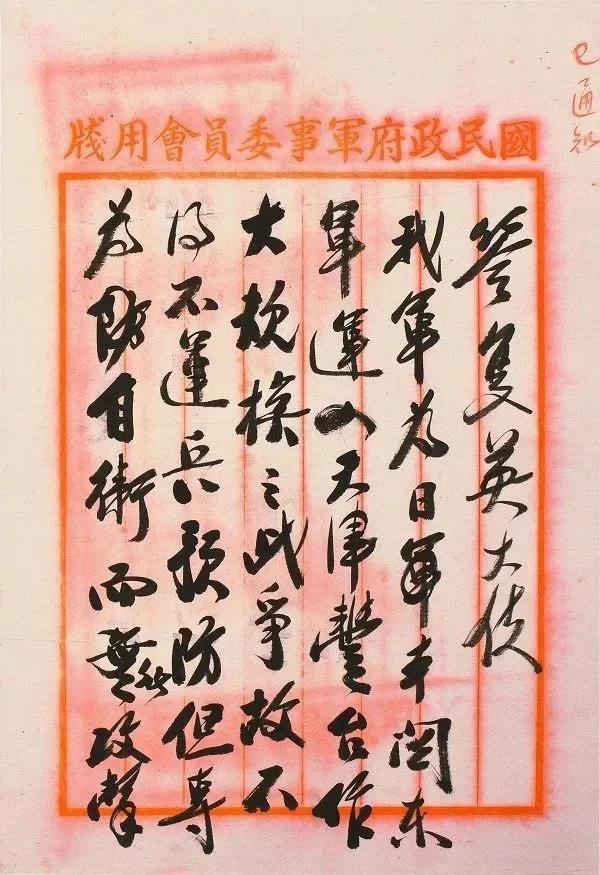 已通知
國民政府軍事委員會用牋
答复英大使
我軍為日軍關東
軍運入天津豐台作
大規模之戰爭故不
得不運兵預防但專
為防自衛而無攻擊